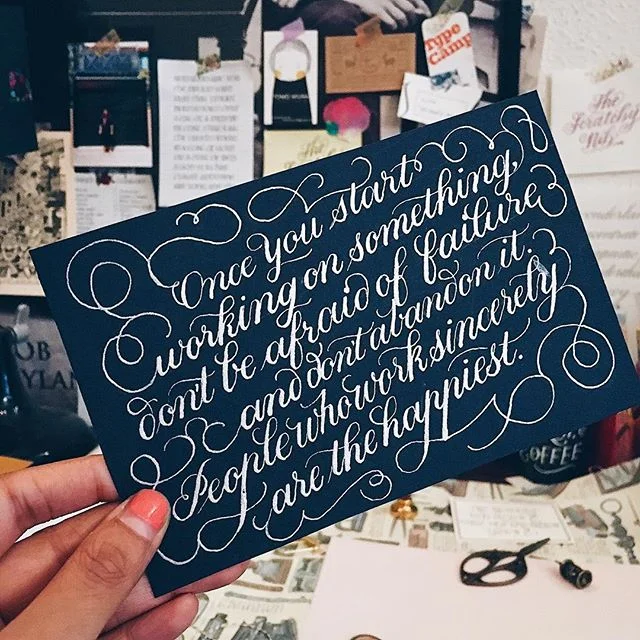 Type
Camp
The
Scratchy
Nib
Once you start
working on something,
dont be afraid of failure
and dont abandon it.
People who work sincerely
are the happiest.
OB
YLAN
COFFEE